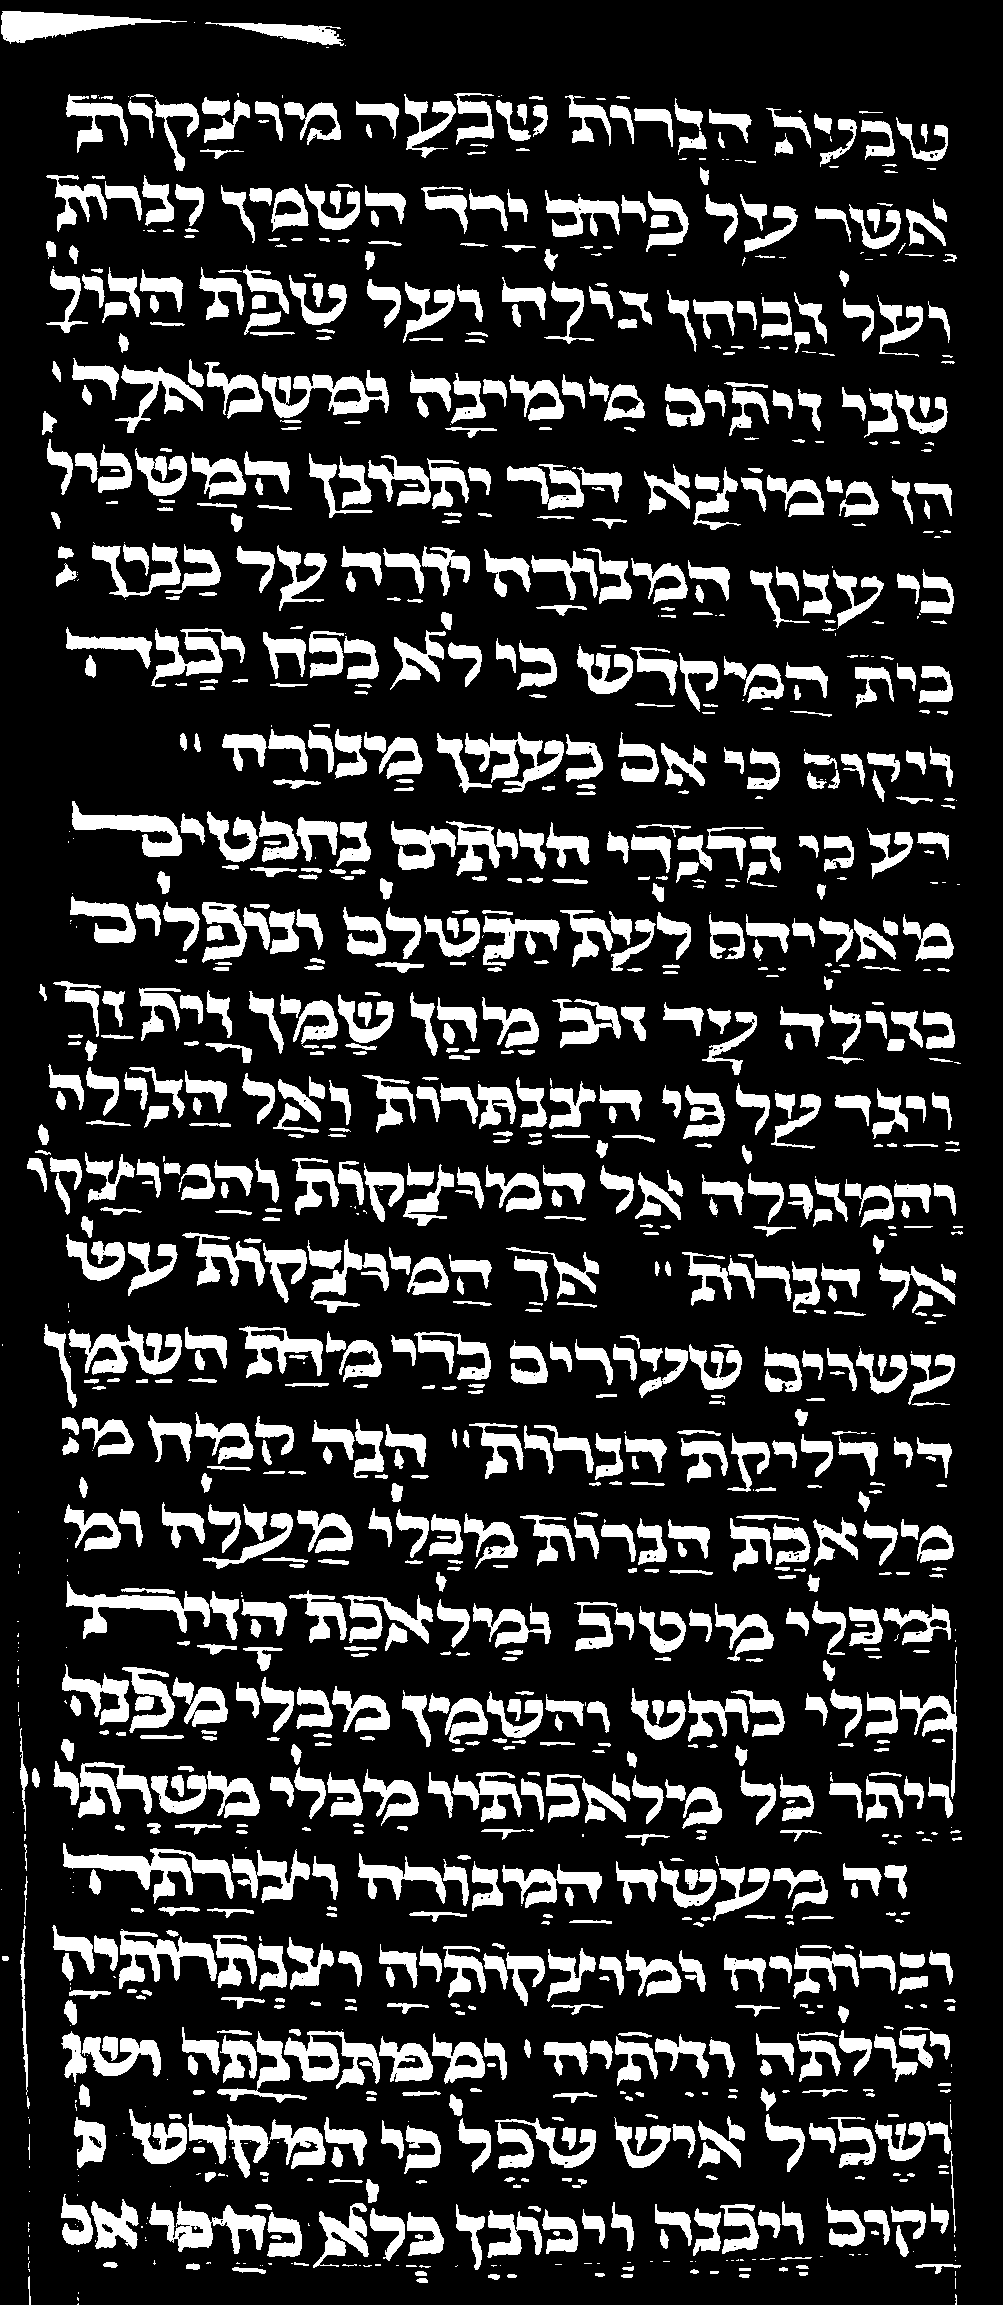 שבעת הנרות שבעה מוצקות
אשר על פיהם ירד השמן לנרות
ועל גביהן גולה ועל שפת הגול
שני זיתים מימינה ומשמאלה
הן ממוצא דבר יתבונן המשכיל
כי ענין המנורה יורה על בנין
בית המקדש כי לא בכח יבנה
ויקום כי אם כענין מנורה
דע כי בדברי הזיתים נחבטים
מאליהם לעת הבשלם ונופלים
בגולה עד זוב מהן שמן זית זך
ויצר על פי הצנתרות ואל הגולה
והמגולה אל המוצקות והמוצקו
אל הנרות אך המוצקות עש
עשוים שעורים כדי מדת השמן
די דליקת הנרות הנה קמח מנ
מלאכת הנרות מבלי מעלה ומ
ומבלי מיטיב ומלאכת הזית
מבלי כותש והשמן מבלי מפנה
ויתר כל מלאכותיו מבלי משרתי
זה מעשה המנורה וצורתה
ונרותיה ומוצקותיה וצנתרותיה
וגולתה וזיתיה וממתכונתה
ישכיל איש שכל כי המקדש
יקום ויבנה ויכונן בלא כח כי אם